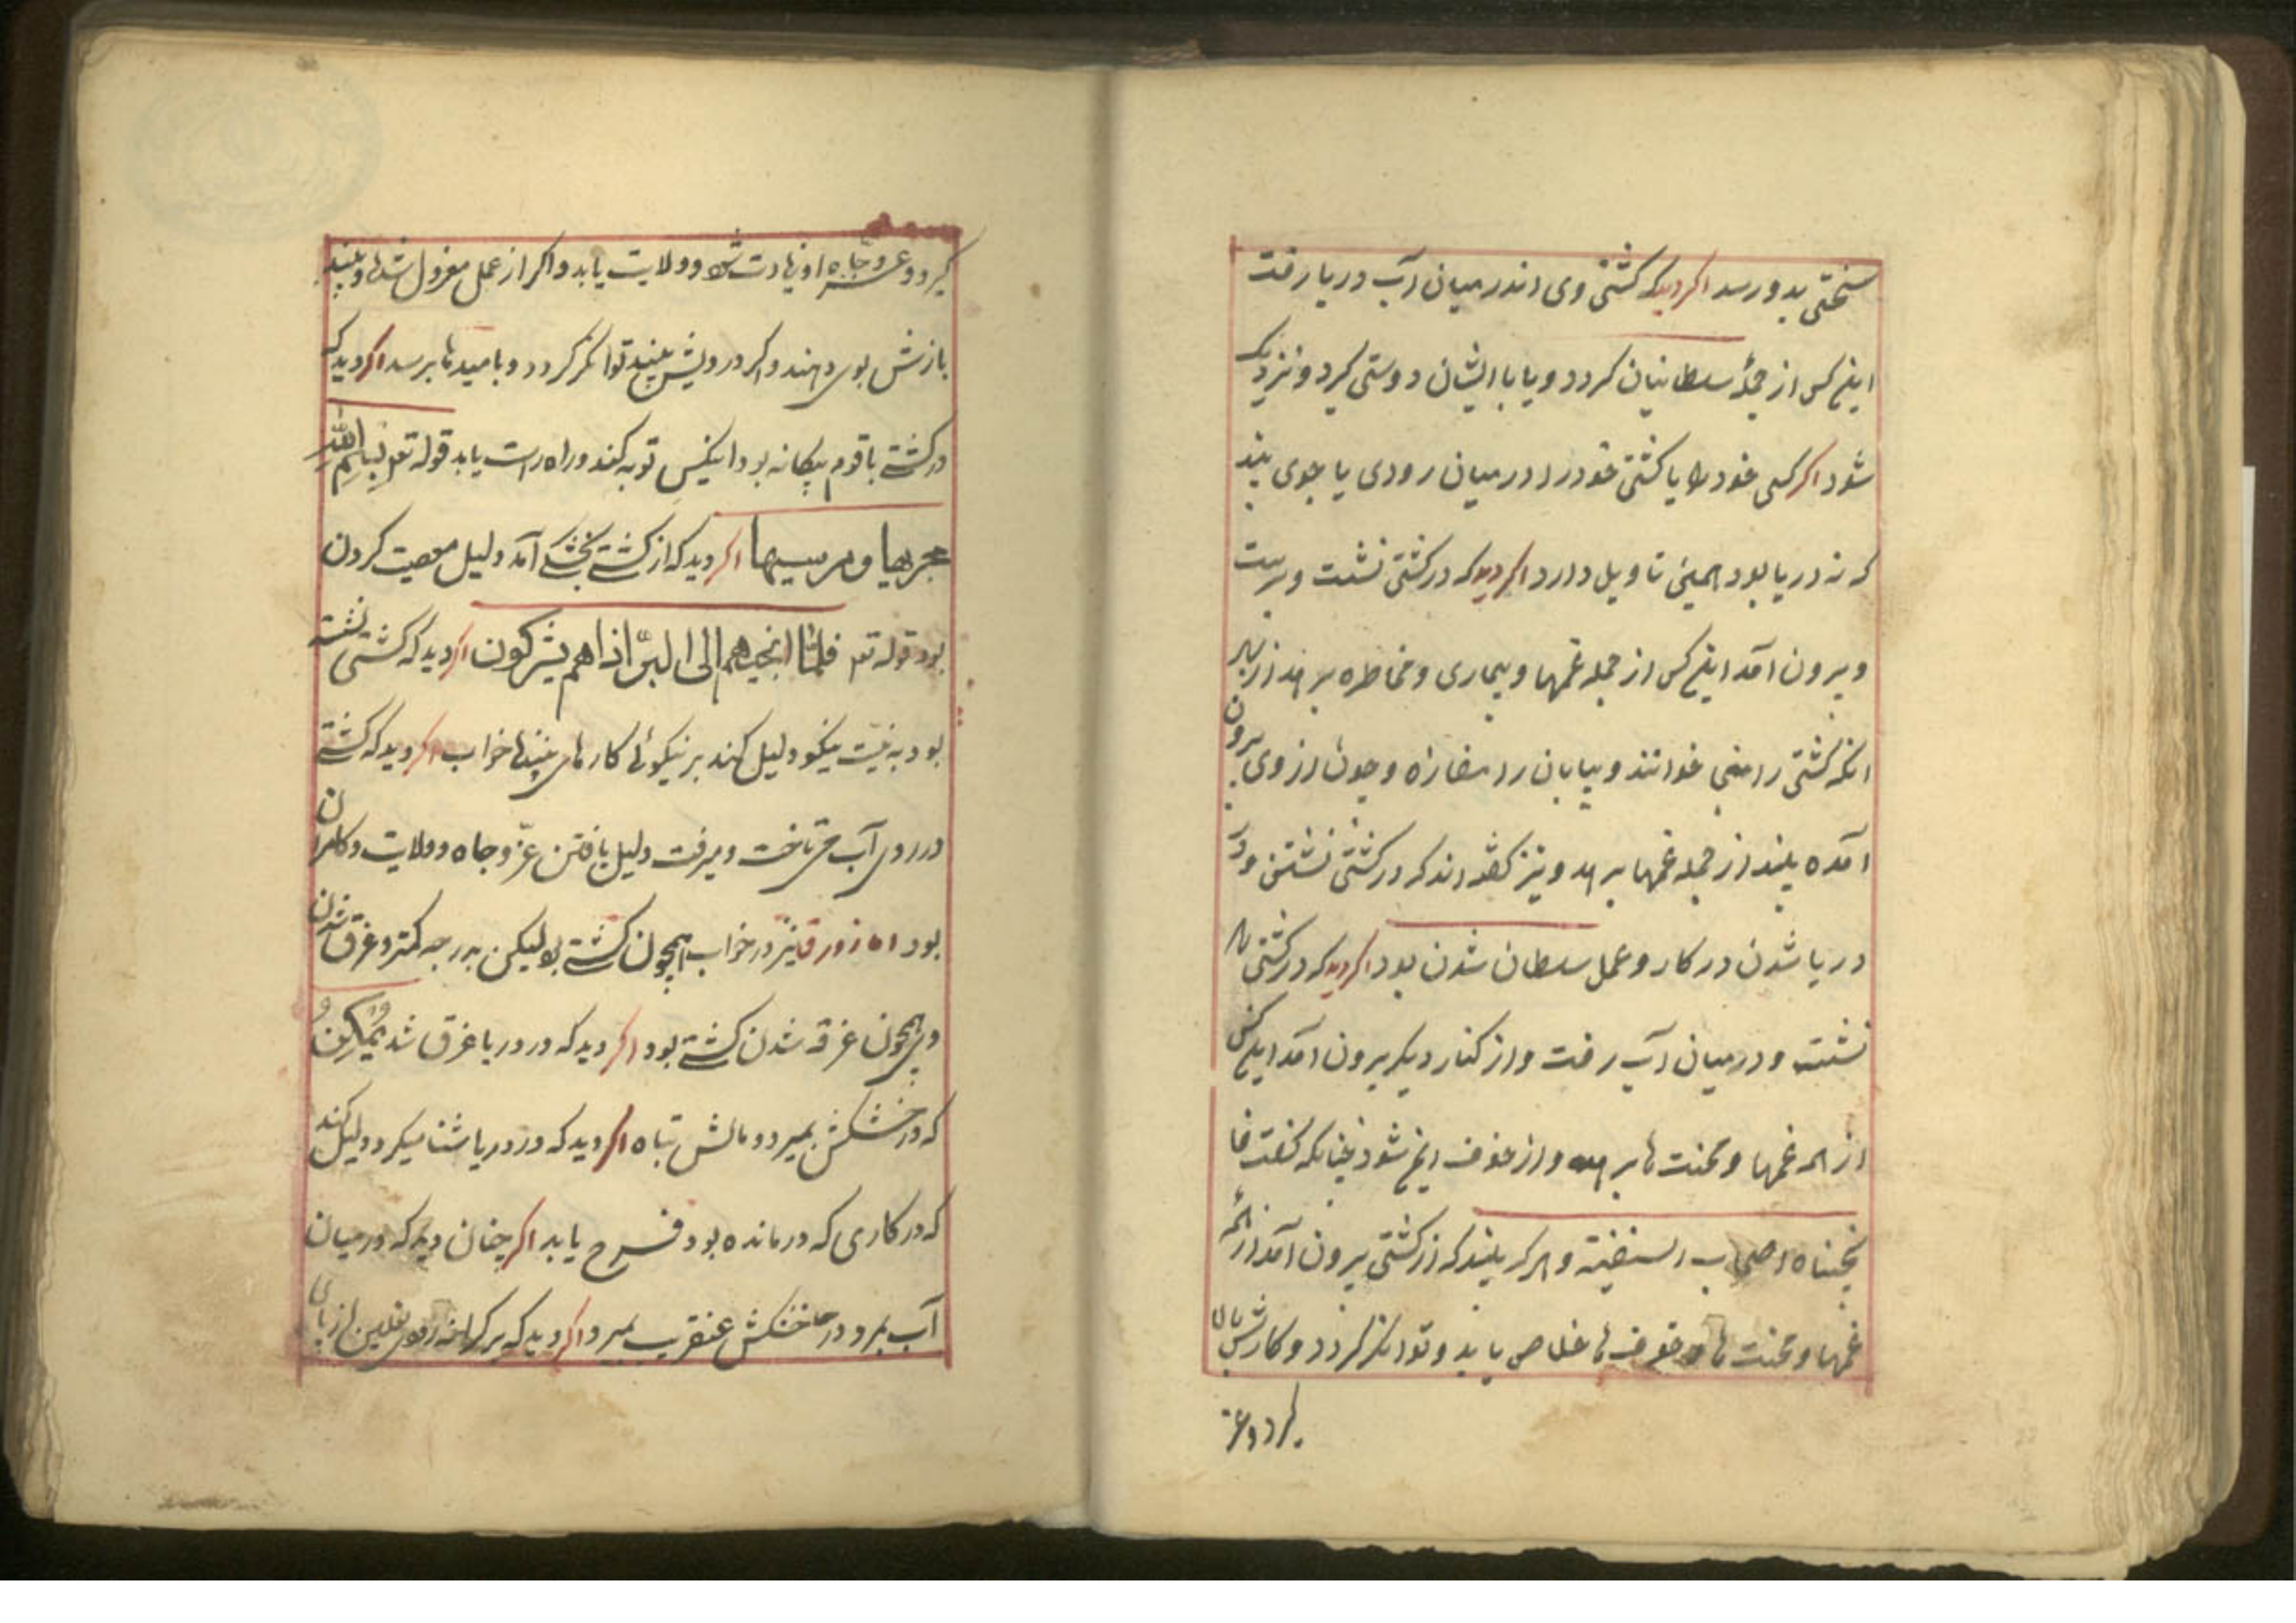 سختی بدو رسد اکر دید که کشتی وی اندر میان آب دریا رفت
اینکس از جملهٔ سلطانیان کردد و یا با ایشان دوستی کیرد و نزدیک
شود اکر کسی خود را یا کشتی خود را در میان رودی یا جوی بیند
که نه دریا بود همین تاویل دارد اکر دید که در کشتی نشست و برست
و بیرون آمد اینکس از جمله غمها و بیماری و مخاطره برهد از بهر
انکه کشتی را منجی خوانند و بیابان را مفازه و چون از وی بیرون
آمده بیند از جمله غمها برهد و نیز کفته اند که در کشتی نشستن و در
دریا شدن در کار و عمل سلطان شدن بود اکر دید که در کشتی
نشست و در میان آب رفت و از کنار دیکر بیرون آمد اینکس
از همه غمها و محنت ها برهد و از خوف ایمن شود چنانکه کفت فا
نجیناه اصحاب السفینة و هر که بیند که از کشتی بیرون آمد از همه
غمها و محنت ها و خوف ها خلاص یابد و توانکر کردد و کارش بالا
کیرد و عز
کیرد و عز و جاه او زیادت شود و ولایت یابد و اکر از عمل معزول شدها و بیند
بازش بوی دهند و اکر درویش بیند توانکر کردد و بامیدها برسد اکر دید که
در کشتی با قوم بیکانه بود اینکس توبه کند و راه راست یابد قوله تعا بسم الله
مجریها و مرسیها اکر دید که از کشتی بخشکی آمد دلیل معصیت کردن
بود قوله تعا فلما انجیهم الی البر اذا هم یشرکون اکر دید که کشتی نشسته
بود به نیت نیکو دلیل کند بر نیکوئی کارهای بینندهٔ خواب اکر دید که کشتی
در روی آب می تاخت و میرفت دلیل یافتن عز و جاه و ولایت و کامران
بود اما زورق نیز در خواب همچون کشتی بود لیکن بدرجه کمتر و غرق شدن
وی همچون غرقه شدن کشتی بود اکر دید که در دریا غرق شد یمکن
که در خشکش بمیرد و مالش تباه اکر دید که در دریا شنا میکرد دلیل کند
که در کاری که درمانده بود فرح یابد اکر چنان دید که در میان
آب بمرد در خشکش عنقریب بمیرد اکر دید که بر